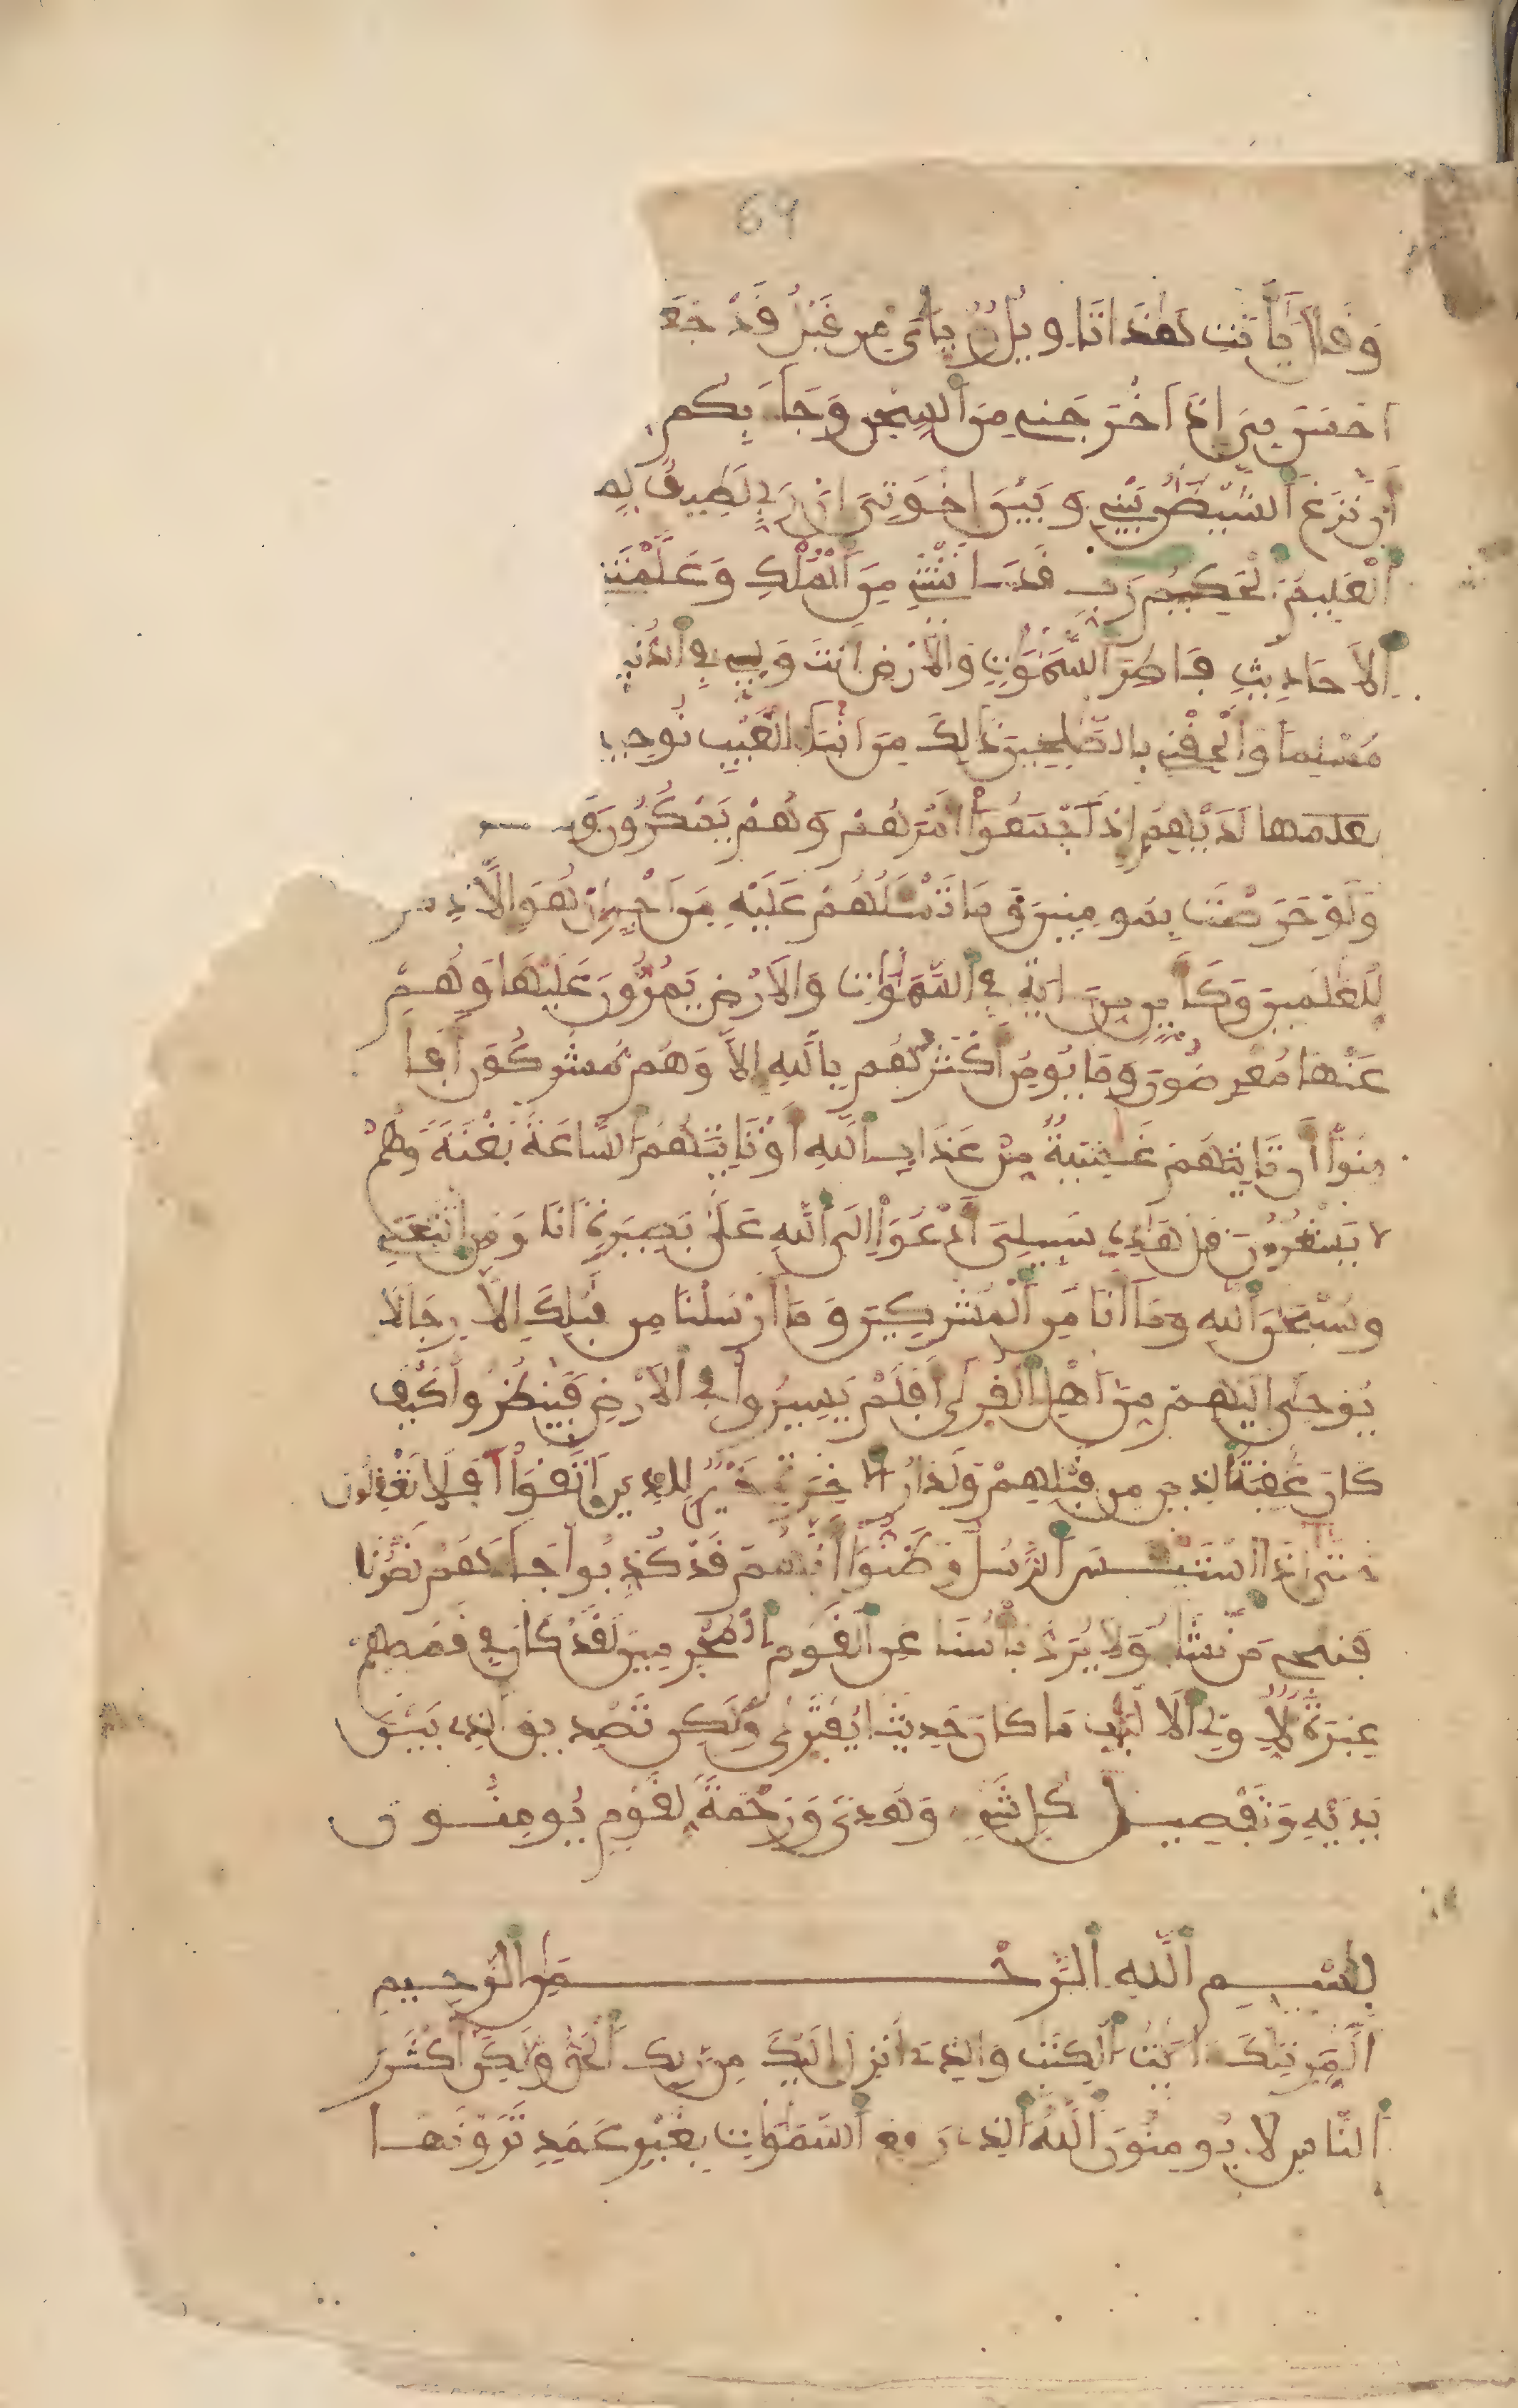 64
وَقَالَ يَٰأَبَتِ هَٰذَا تَاوِيلُ رُءْيَٰيَ مِن قَبْلُ قَدْ جَعَ
احْسَنَ بِيَ إِذَ اخْرَجَنِي مِنَ ٱلسِّجْنِ وَجَآءَ بِكُم
أَن نَّزَغَ ٱلشَّيْطَٰنُ بَيْنِي وَبَيْنَ إِخْوَتِيَ إِنَّ رَبِّي لَطِيفٌ لِّمَ
ٱلْعَلِيمُ ٱلْحَكِيمُ رَبِّ قَدَ اتَيْتَنِي مِنَ ٱلْمُلْكِ وَعَلَّمْتَنِ
ٱلَاحَادِيثِ فَاطِرَ ٱلسَّمَٰوَٰتِ وَالَارْضِ أَنتَ وَلِيِّ فِي ٱلدُّنْيَ
مُسْلِمًا وَأَلْحِقْنِي بِالصَّٰلِحِينَ ذَٰلِكَ مِنَ انۢبَآءِ الْغَيْبِ نُوحِي
لَدَيْهِمُ إِذَ اجْمَعُوٓاْ أَمْرَهُمْ وَهُمْ يَمْكُرُونَ وَ
وَلَوْ حَرَصْتَ بِمُومِنِينَ وَمَا تَسْـَٔلُهُمْ عَلَيْهِ مِنَ اجْرٍ إِنْ هُوَ إِلَّا ذِكْر
لِّلْعَٰلَمِينَ وَكَأَيِّن مِّنَ ايَةٍ فِي ٱلسَّمَٰوَٰتِ وَالَارْضِ يَمُرُّونَ عَلَيْهَا وَهُمْ
عَنْهَا مُعْرِضُونَ وَمَا يُومِنُ أَكْثَرُهُم بِاللَّهِ إِلَّا وَهُم مُّشْرِكُونَ أَفَا
مِنُوٓاْ أَن تَاتِيَهُمْ غَٰشِيَةٌ مِّنْ عَذَابِ ٱللَّهِ أَوْ تَاتِيَهُمُ ٱلسَّاعَةُ بَغْتَةً وَهُمْ
لَا يَشْعُرُونَ قُلْ هَٰذِهِ سَبِيلِيَ أَدْعُوٓاْ إِلَى ٱللَّهِ عَلَىٰ بَصِيرَةٍ أَنَا وَمَنِ اتَّبَعَنِي
وَسُبْحَٰنَ ٱللَّهِ وَمَآ أَنَا مِنَ ٱلْمُشْرِكِينَ وَمَآ أَرْسَلْنَا مِن قَبْلِكَ إِلَّا رِجَالًا
يُوحَىٰ إِلَيْهِم مِّنَ اهْلِ ٱلْقُرَىٰ أَفَلَمْ يَسِيرُواْ فِي ٱلَارْضِ فَيَنظُرُواْ كَيْفَ
كَانَ عَٰقِبَةُ ٱلَّذِينَ مِن قَبْلِهِمْ وَلَدَارُ ٱلَاخِرَةِ خَيْرٌ لِّلَّذِينَ ٱتَّقَوَاْ أَفَلَا تَعْقِلُونَ
حَتَّىٰ إِذَا اسْتَيْـَٔسَ ٱلرُّسُلُ وَظَنُّوٓاْ أَنَّهُمْ قَدْ كُذِّبُواْ جَآءَهُمْ نَصْرُنَا
فَنُنجِي مَن نَّشَآءُ وَلَا يُرَدُّ بَأْسُنَا عَنِ ٱلْقَوْمِ ٱلْمُجْرِمِينَ لَقَدْ كَانَ فِي قَصَصِهِمْ
عِبْرَةٌ لِّأُوْلِي ٱلَالْبَٰبِ مَا كَانَ حَدِيثًا يُفْتَرَىٰ وَلَٰكِن تَصْدِيقَ ٱلَّذِي بَيْنَ
يَدَيْهِ وَتَفْصِيلَ كُلِّ شَيْءٍ وَهُدًى وَرَحْمَةً لِّقَوْمٍ يُومِنُونَ
بِسْمِ ٱللَّهِ ٱلرَّحْمَٰنِ ٱلرَّحِيمِ
الٓمِّٓر تِلْكَ ءَايَٰتُ ٱلْكِتَٰبِ وَالَّذِي أُنزِلَ إِلَيْكَ مِن رَّبِّكَ ٱلْحَقُّ وَلَٰكِنَّ أَكْثَرَ
ٱلنَّاسِ لَا يُومِنُونَ ٱللَّهُ ٱلَّذِي رَفَعَ ٱلسَّمَٰوَٰتِ بِغَيْرِ عَمَدٍ تَرَوْنَهَا